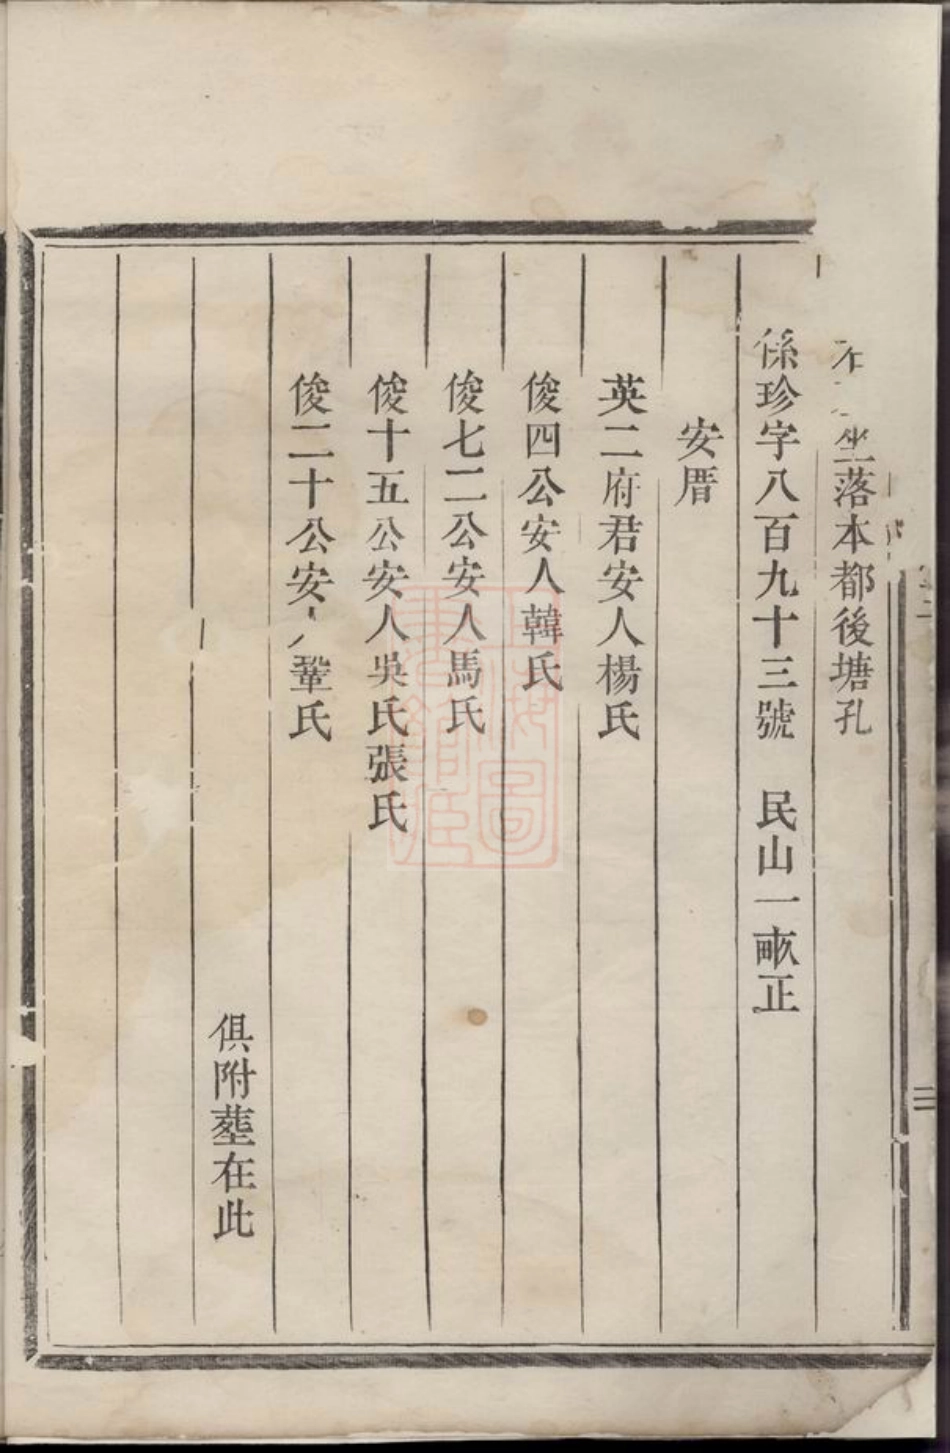 坐落本都後塘孔
係珍字八百九十三號　民山一畝正
安厝
英二府君安人楊氏
俊四公安人韓氏
俊七二公安人馬氏
俊十五公安人吳氏張氏
俊二十公安人鞏氏
俱附塟在此